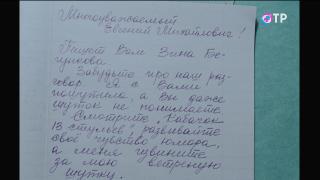 ОТР
Многоуважаемый
Евгений Михайлович!
Пишет Вам Зина Бе-
гункова
Забудьте про наш раз-
говор. Я с Вами
пошутила, а Вы даже
шуток не понимаете.
Смотрите „Кабачок
13 стульев", развивайте
своё чувство юмора,
а меня извините
за мою ветреную
шутку.